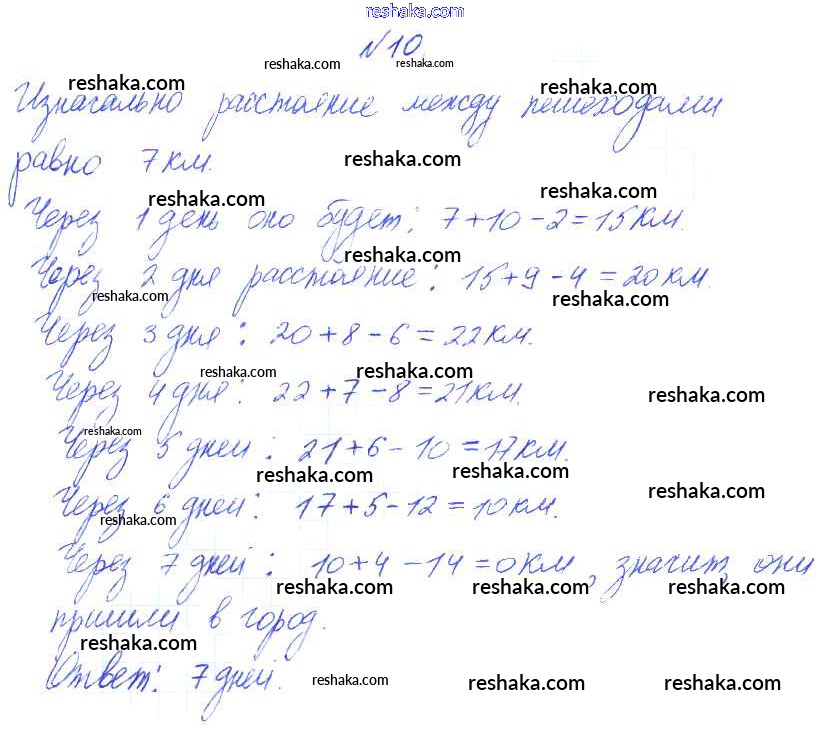 reshaka.com
№10.
reshaka.com reshaka.com
reshaka.com reshaka.com
Изначально расстояние между пешеходами
равно 7 км.
reshaka.com
reshaka.com reshaka.com
Через 1 день оно будет: 7+10-2=15 км.
reshaka.com
Через 2 дня расстояние: 15+9-4=20 км.
reshaka.com reshaka.com
Через 3 дня: 20+8-6=22 км.
reshaka.com reshaka.com
Через 4 дня: 22+7-8=21 км.
reshaka.com
reshaka.com
Через 5 дней: 21+6-10=17 км.
reshaka.com reshaka.com
reshaka.com
Через 6 дней: 17+5-12=10 км.
reshaka.com
Через 7 дней: 10+4-14=0 км, значит, они
reshaka.com reshaka.com reshaka.com
пришли в город.
reshaka.com
Ответ: 7 дней.
reshaka.com reshaka.com reshaka.com